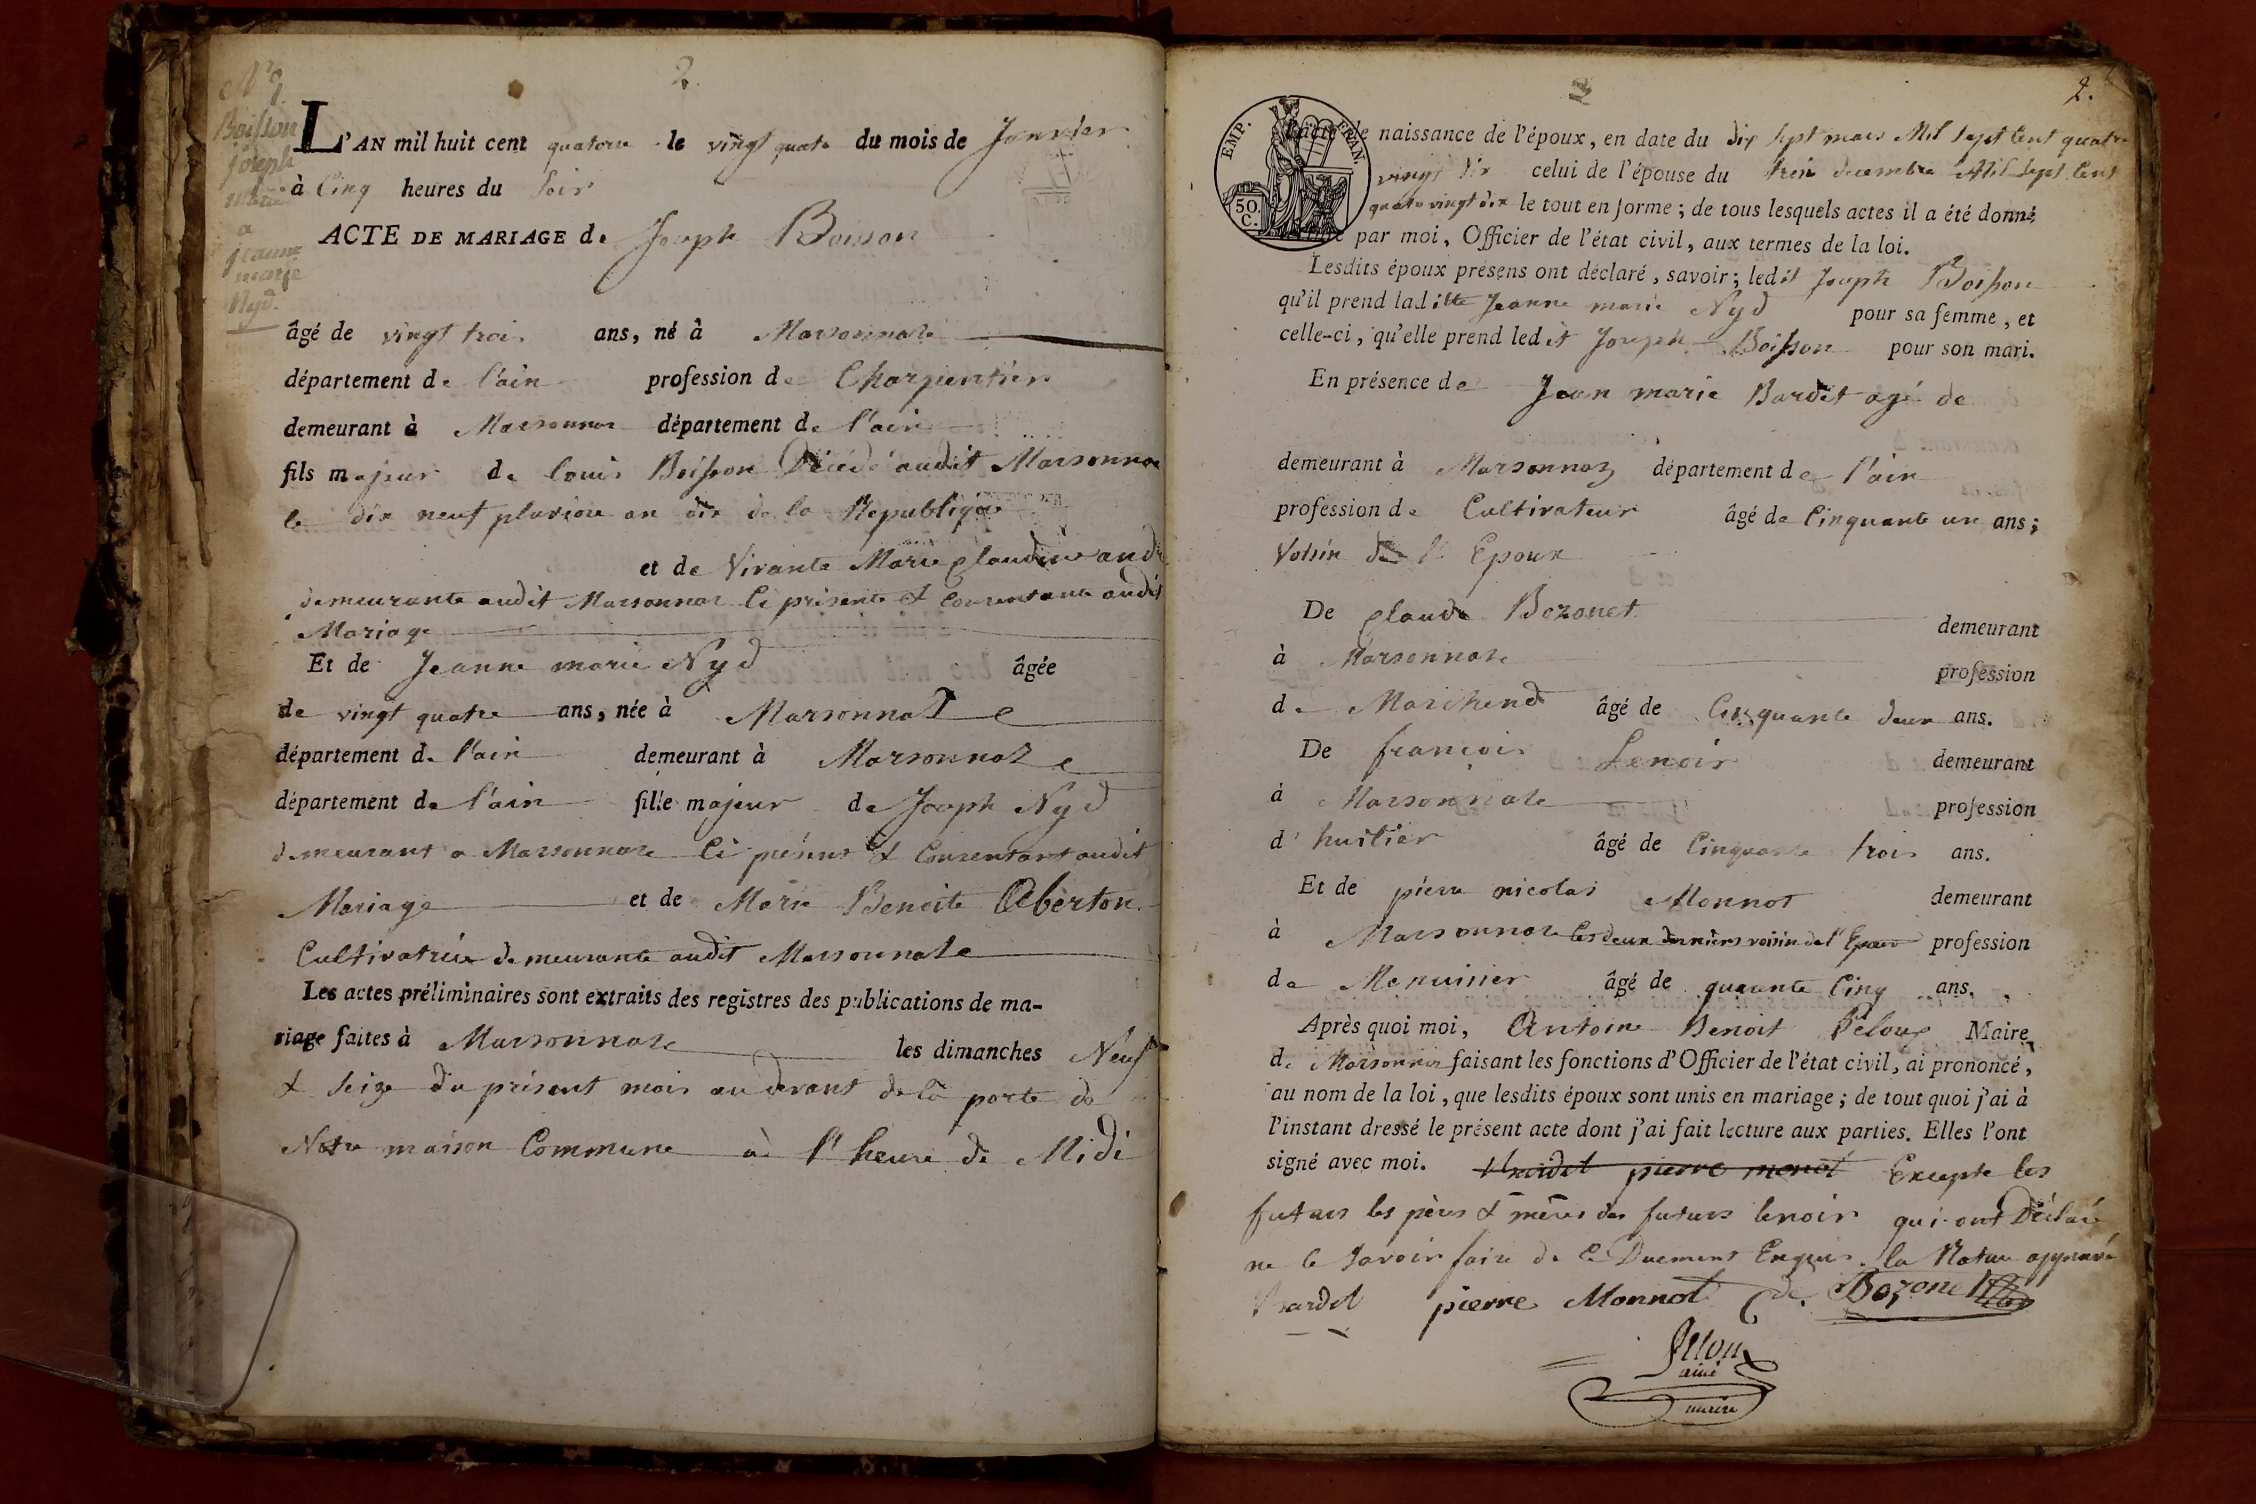 2.
N° 1
Boisson
joseph
marié
a
jeanne
marie
Nyd.
L'AN mil huit cent quatorze le vingt quatre du mois de Janvier
à Cinq heures du Soir
ACTE DE MARIAGE de Joseph Boisson
âgé de vingt trois ans, né à Marsonnaz
département de l'ain profession de Charpentier
demeurant à Marsonnaz département de l'ain
fils majeur de louis Boisson Décédé audit Marsonnaz
le dix neuf pluviose an dix de la Republique
et de Vivante Marie Claudine
demeurante audit Marsonnaz Ci présente & Consentante audit
Mariage
Et de Jeanne marie Nyd âgée
de vingt quatre ans, née à Marsonnaz
département de l'ain demeurant à Marsonnaz
département de l'ain fille majeur de Joseph Nyd
demeurant a Marsonnaz Ci présent & Consentant audit
Mariage et de Marie Benoite Oberton
Cultivatrice demeurante audit Marsonnaz
Les actes préliminaires sont extraits des registres des publications de ma-
riage faites à Marsonnaz les dimanches Neuf
& Seize du présent mois au devant de la porte de
Notre maison Commune à l'heure de Midi
2.
EMP. FRAN.
50.
C.
l'acte de naissance de l'époux, en date du dix Sept mars Mil Sept Cent quatre
vingt dix celui de l'épouse du decembre Mil Sept Cent
quatre vingt dix le tout en forme ; de tous lesquels actes il a été donné
par moi, Officier de l'état civil, aux termes de la loi.
Lesdits époux présens ont déclaré, savoir ; ledit Joseph Boisson
qu'il prend laditte Jeanne marie Nyd pour sa femme, et
celle-ci, qu'elle prend ledit Joseph Boisson pour son mari.
En présence de Jean marie Bardet agé de
demeurant à Marsonnaz département de l'ain
profession de Cultivateur âgé de Cinquante un ans ;
Voisin de l'Epoux
De Claude Bozonet demeurant
à Marsonnaz profession
de Marchand âgé de Cinquante deux ans.
De françois Lenoir demeurant
à Marsonnaz profession
d' huilier âgé de Cinquante trois ans.
Et de pierre nicolas Monnot demeurant
à Marsonnaz les deux derniers voisin de l'Epoux profession
de Menuisier âgé de quarante Cinq ans.
Après quoi moi, Antoine Benoit Maire
de Marsonnaz faisant les fonctions d'Officier de l'état civil, ai prononcé,
au nom de la loi, que lesdits époux sont unis en mariage ; de tout quoi j'ai à
l'instant dressé le présent acte dont j'ai fait lecture aux parties. Elles l'ont
signé avec moi. Bardet pierre monot Excepte les
futurs les pères & mères des futurs lenoir qui ont Déclaré
ne le Savoir faire de Ce Duement Enquis. la Rature approuvé
Bardet pierre Monnot Bozonet
ainé
maire